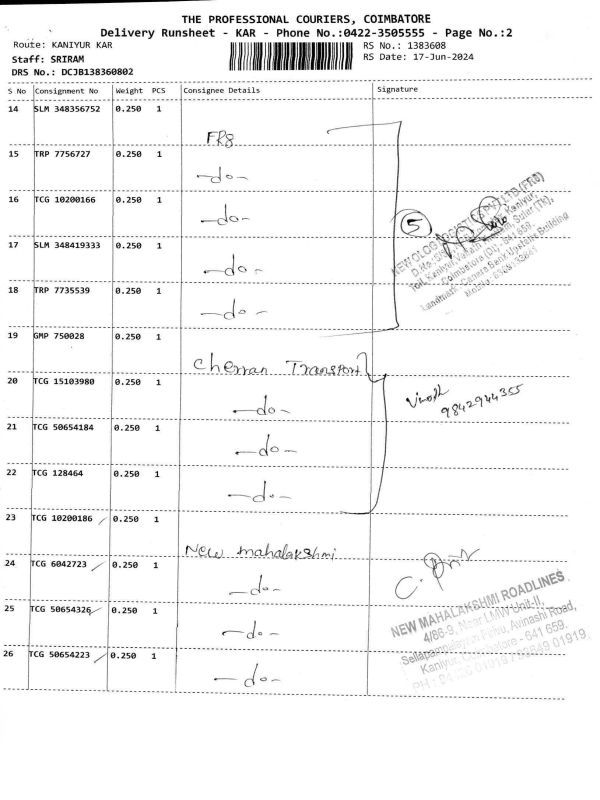 THE PROFESSIONAL COURIERS, COIMBATORE
Delivery Runsheet - KAR - Phone No.:0422-3505555 - Page No.:2
Route: KANIYUR KAR
RS No.: 1383608
Staff: SRIRAM
RS Date: 17-Jun-2024
DRS No.: DCJB138360802
S No Consignment No Weight PCS Consignee Details Signature
14 SLM 348356752 0.250 1
FR8
15 TRP 7756727 0.250 1
-do-
16 TCG 10200166 0.250 1
-do-
5
17 SLM 348419333 0.250 1
-do-
18 TRP 7735539 0.250 1
-do-
19 GMP 750028 0.250 1
Cherran Transport
20 TCG 15103980 0.250 1
-do-
Vinoth
9842944355
21 TCG 50654184 0.250 1
-do-
22 TCG 128464 0.250 1
-do-
23 TCG 10200186 0.250 1
New mahalakshmi
24 TCG 6042723 0.250 1
-do-
25 TCG 50654326 0.250 1
-do-
26 TCG 50654223 0.250 1
-do-
NEW MAHALAKSHMI ROADLINES
4/86-9, Near LMW Unit-II,
Avinashi Road,
Kaniyur, Coimbatore - 641 659.